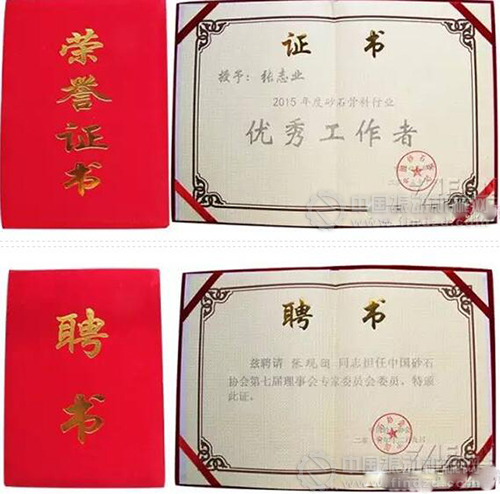 荣誉证书
证书
授予：张志业
2015年度砂石骨料行业
优秀工作者
聘书
聘书
兹聘请 张 同志担任中国砂石
协会第七届理事会专家委员会委员，特颁
此证。